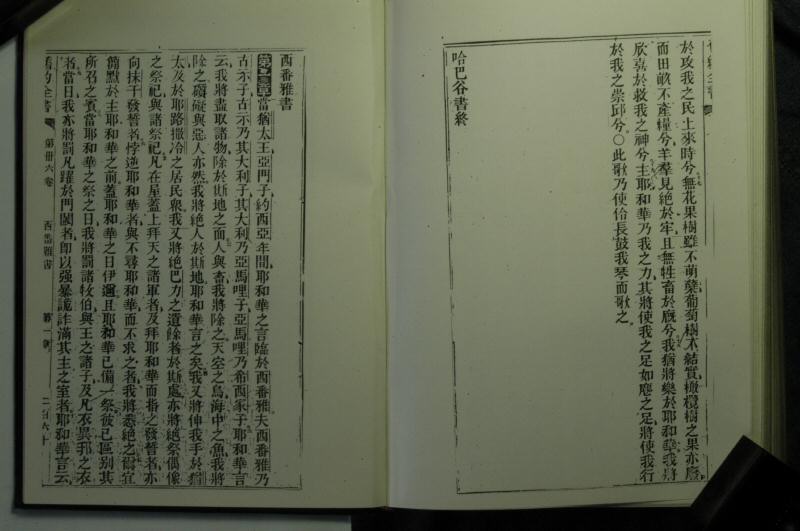 於攻我之民上來時兮無花果樹雖不萌蘖葡萄樹不結實橄欖樹之果亦廢
而田畝不產糧兮羊羣見絕於牢且無牲畜於廐兮我猶將樂於耶和華我將
欣喜於救我之神兮主耶和華乃我之力其將使我之足如麀之足將使我行
於我之崇邱兮○此歌乃使伶長鼓我琴而歌之
哈巴谷書終
西番雅書
第一章當猶太王亞門子約西亞年間耶和華之言臨於西番雅夫西番雅乃
古示子古示乃其大利子其大利乃亞馬哩子亞馬哩乃希西家子耶和華言
云我將盡取諸物除於斯地之面人與畜我將除之天空之鳥海中之魚我將
除之礙與惡人亦然我將絕人於斯地耶和華言之矣我又將伸我手於猶
太及於耶路撒冷之居民衆我又將絕巴力之遺餘者於斯處亦將絕祭偶像
之祭祀與諸祭祀凡在屋蓋上拜天之諸軍者及拜耶和華而指之發誓者亦
向抹千發誓者悖逆耶和華者與不尋耶和華而不求之者我將悉絕之爾宜
緘默於主耶和華之前蓋耶和華之日伊邇且耶和華已備一祭彼已區別其
所召之賓當耶和華之祭之日我將罰諸牧伯與王之諸子及凡衣異邦之衣
者當日我亦將罰凡躍於門閾者卽以强暴詭詐滿其主之室者耶和華言云
舊約全書
第卅六卷
西番雅書
第一章
二百六十